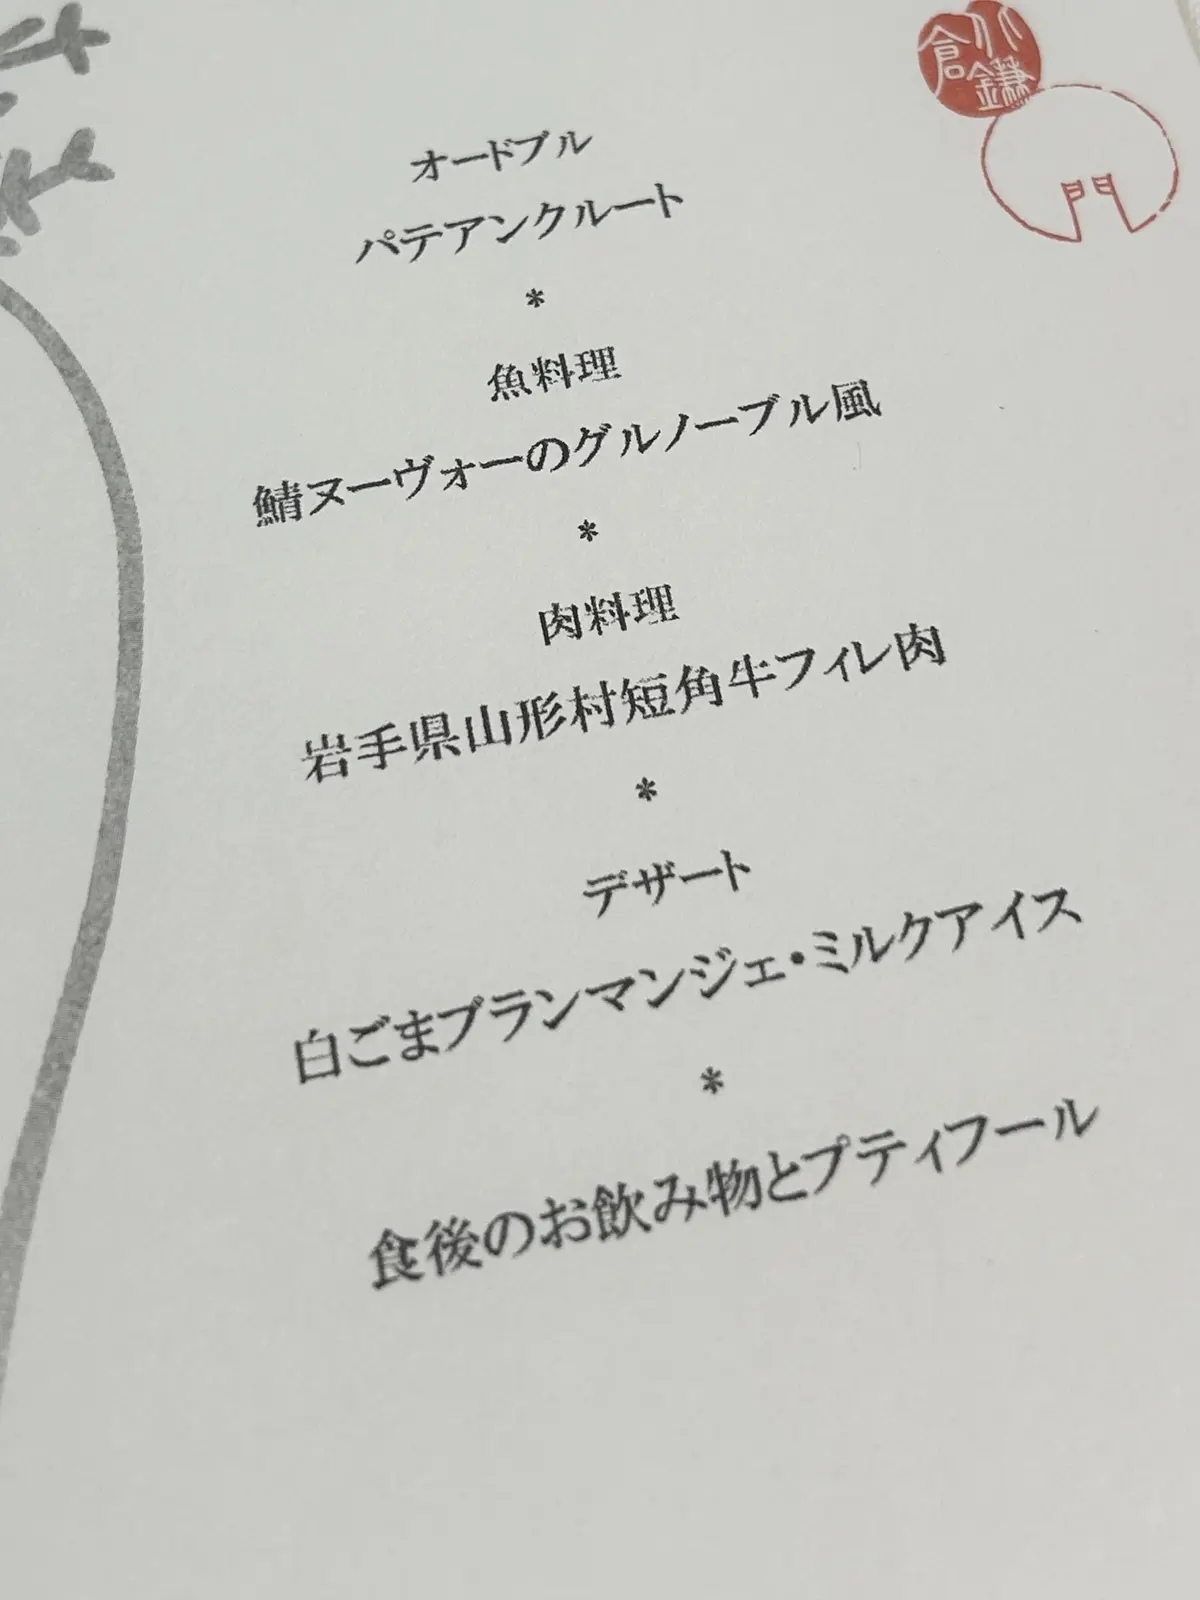 北鎌倉
門
オードブル
パテアンクルート
*
魚料理
鯖ヌーヴォーのグルノーブル風
*
肉料理
岩手県山形村短角牛フィレ肉
*
デザート
白ごまブランマンジェ・ミルクアイス
*
食後のお飲み物とプティフール